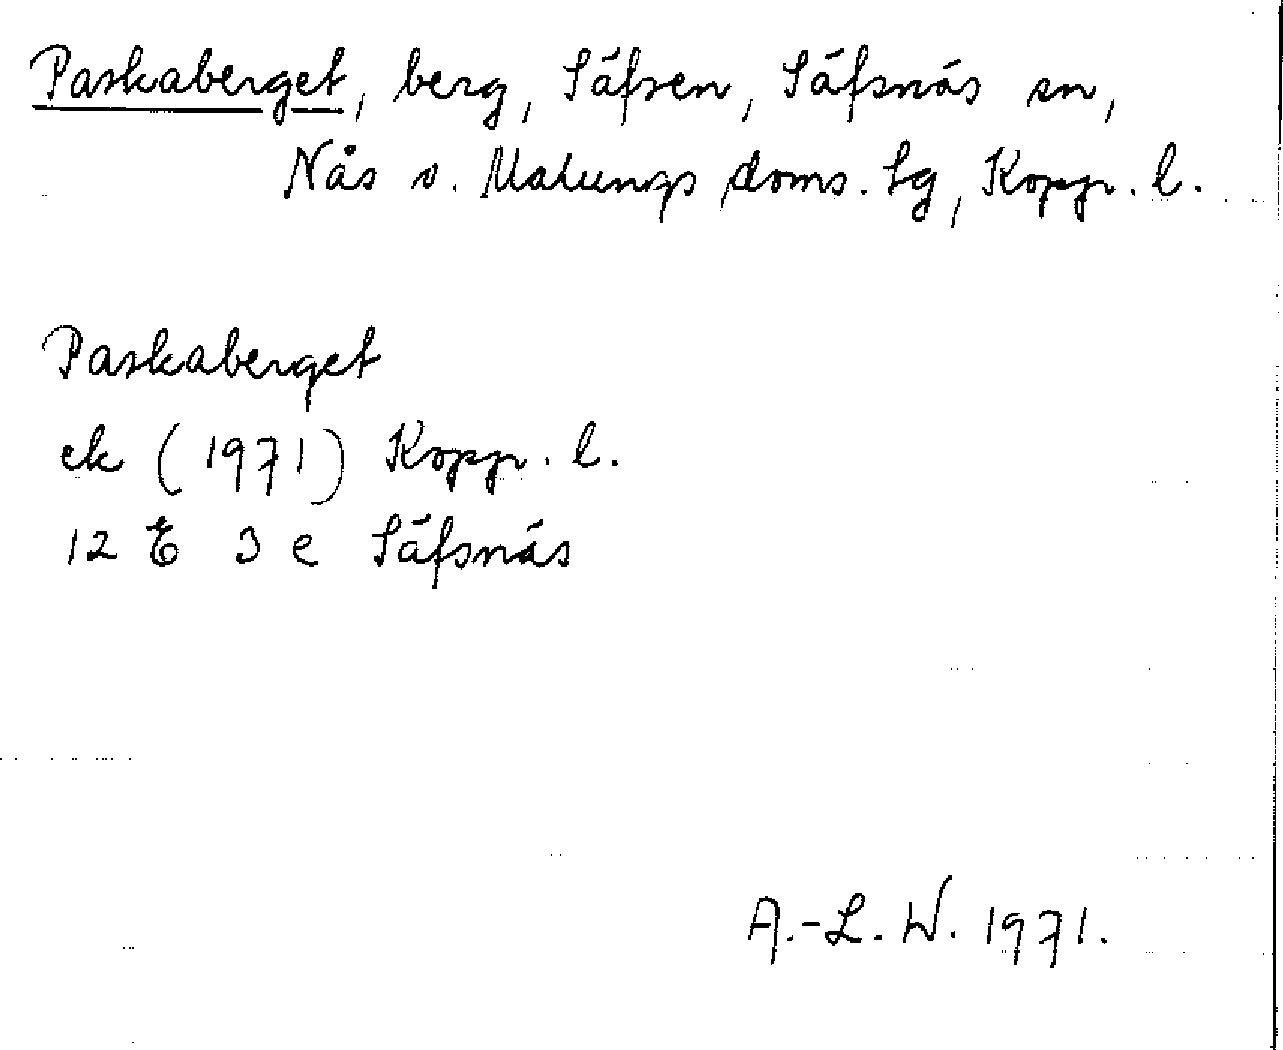 Paskaberget, berg, Säfsen, Säfsnäs sn,
Nås o. Malungs doms. lg, Kopp. l.
Paskaberget
ek (1971) Kopp. l.
12 E 3 e Säfsnäs
A.-L. W. 1971.